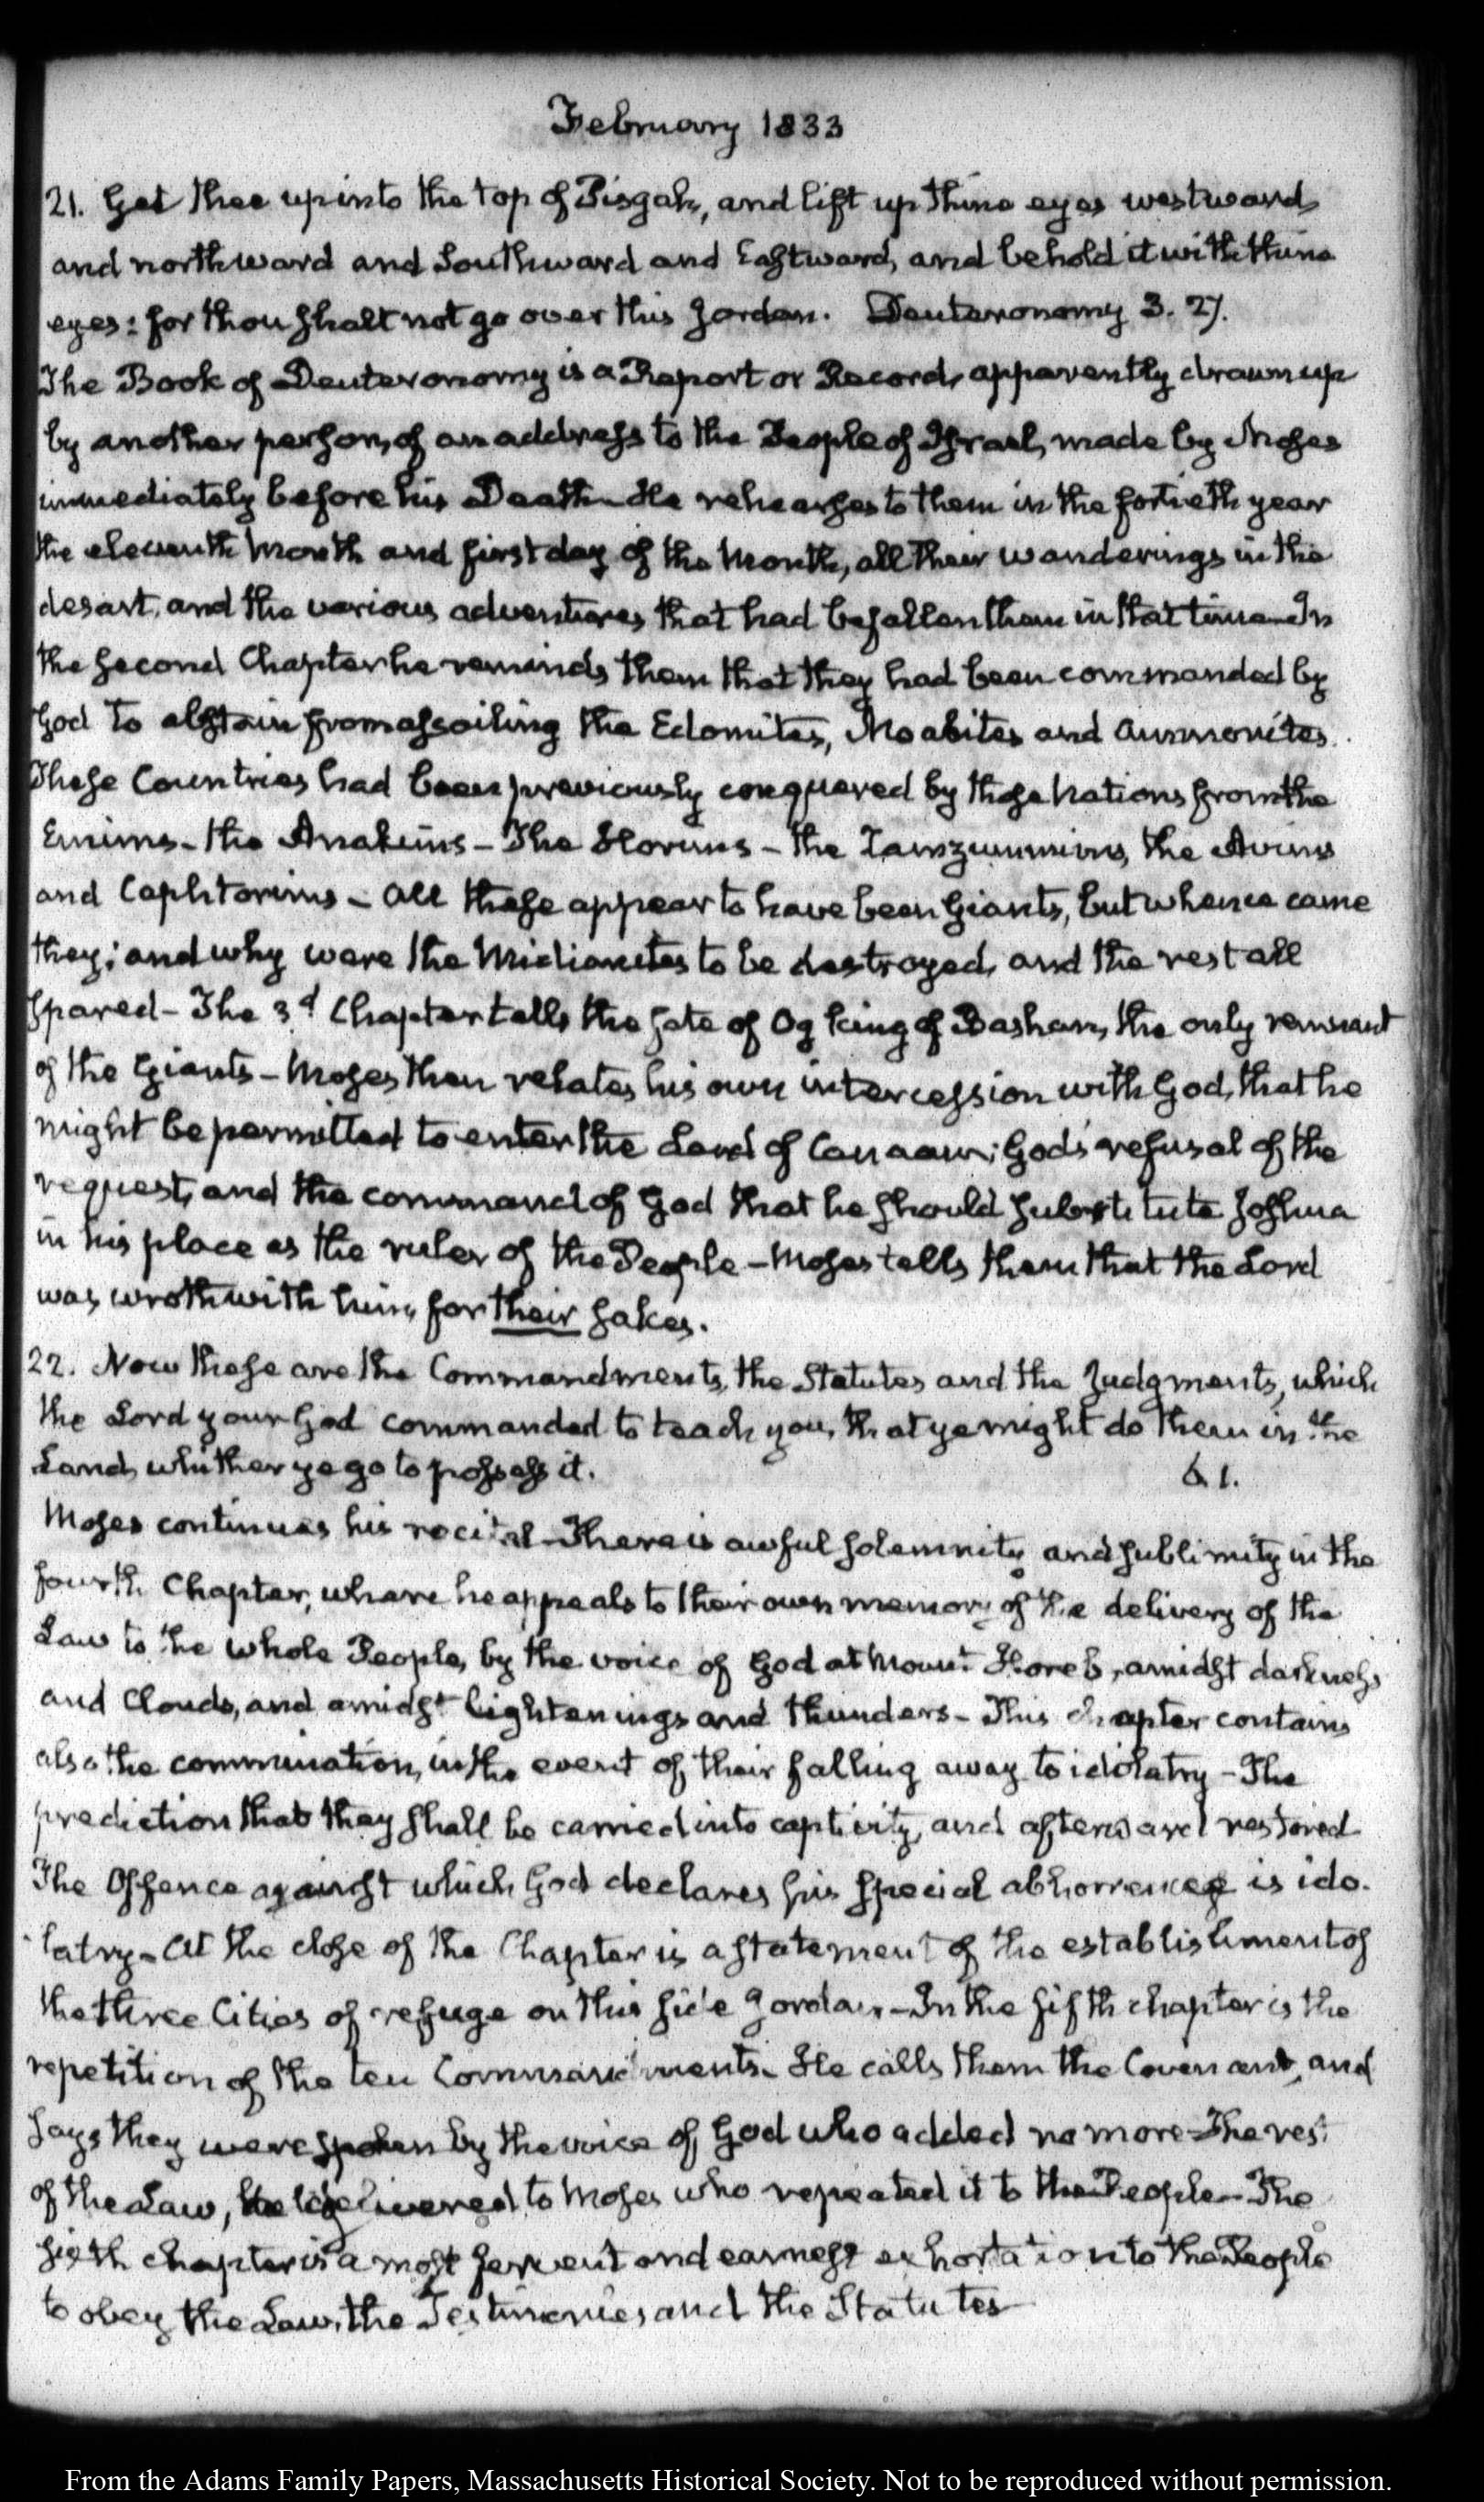 February 1833
21. Get thee up into the top of Pisgah, and lift up thine eyes westward,
and northward and Southward and Eastward, and behold it with thine
eyes: for thou shalt not go over this Jordan. Deuteronomy 3. 27.
The Book of Deuteronomy is a Report or Record, apparently drawn up
by another person, of an address to the People of Israel, made by Moses
immediately before his Death—He rehearses to them in the fortieth year
the eleventh Month and first day of the Month, all their wanderings in the
desart, and the various adventures that had befallen them in that time—In
the second Chapter he reminds them that they had been commanded by
God to abstain from assailing the Edomites, Moabites and Ammonites.
These Countries had been previously conquered by those Nations from the
Emims—the Anakims—The Horims—the Zamzummims, the Avims
and Caphtorims—All these appear to have been Giants, but whence came
they; and why were the Midianites to be destroyed, and the rest all
spared—The 3d. Chapter tells the fate of Og king of Bashan, the only remnant
of the Giants—Moses then relates his own intercession with God, that he
might be permitted to enter the Land of Canaan; God's refusal of the
request, and the command of God that he should substitute Joshua
in his place as the ruler of the People—Moses tells them that the Lord
was wroth with him, for their sakes.
22. Now these are the Commandments, the Statutes and the Judgments, which
the Lord your God commanded to teach you, that ye might do them in the
Land, whither ye go to possess it. 6 1.
Moses continues his recital—There is awful solemnity and sublimity in the
fourth Chapter, where he appeals to their own memory of the delivery of the
Law to the whole People, by the voice of God at Mount Horeb, amidst darkness
and Clouds, and amidst lightenings and thunders—This chapter contains
also the commination, in the event of their falling away to idolatry—The
prediction that they shall be carried into captivity, and afterward restored
The Offence against which God declares his special abhorrence is ido-
latry—At the close of the Chapter is a statement of the establishment of
the three Cities of refuge on this side Jordan—In the fifth chapter is the
repetition of the ten Commandments—He calls them the Covenant, and
says they were spoken by the voice of God who added no more—The rest
of the Law, he delivered to Moses who repeated it to the People—The
sixth chapter is a most fervent and earnest exhortation to the People
to obey the Law, the Testimonies and the Statutes—
From the Adams Family Papers, Massachusetts Historical Society. Not to be reproduced without permission.